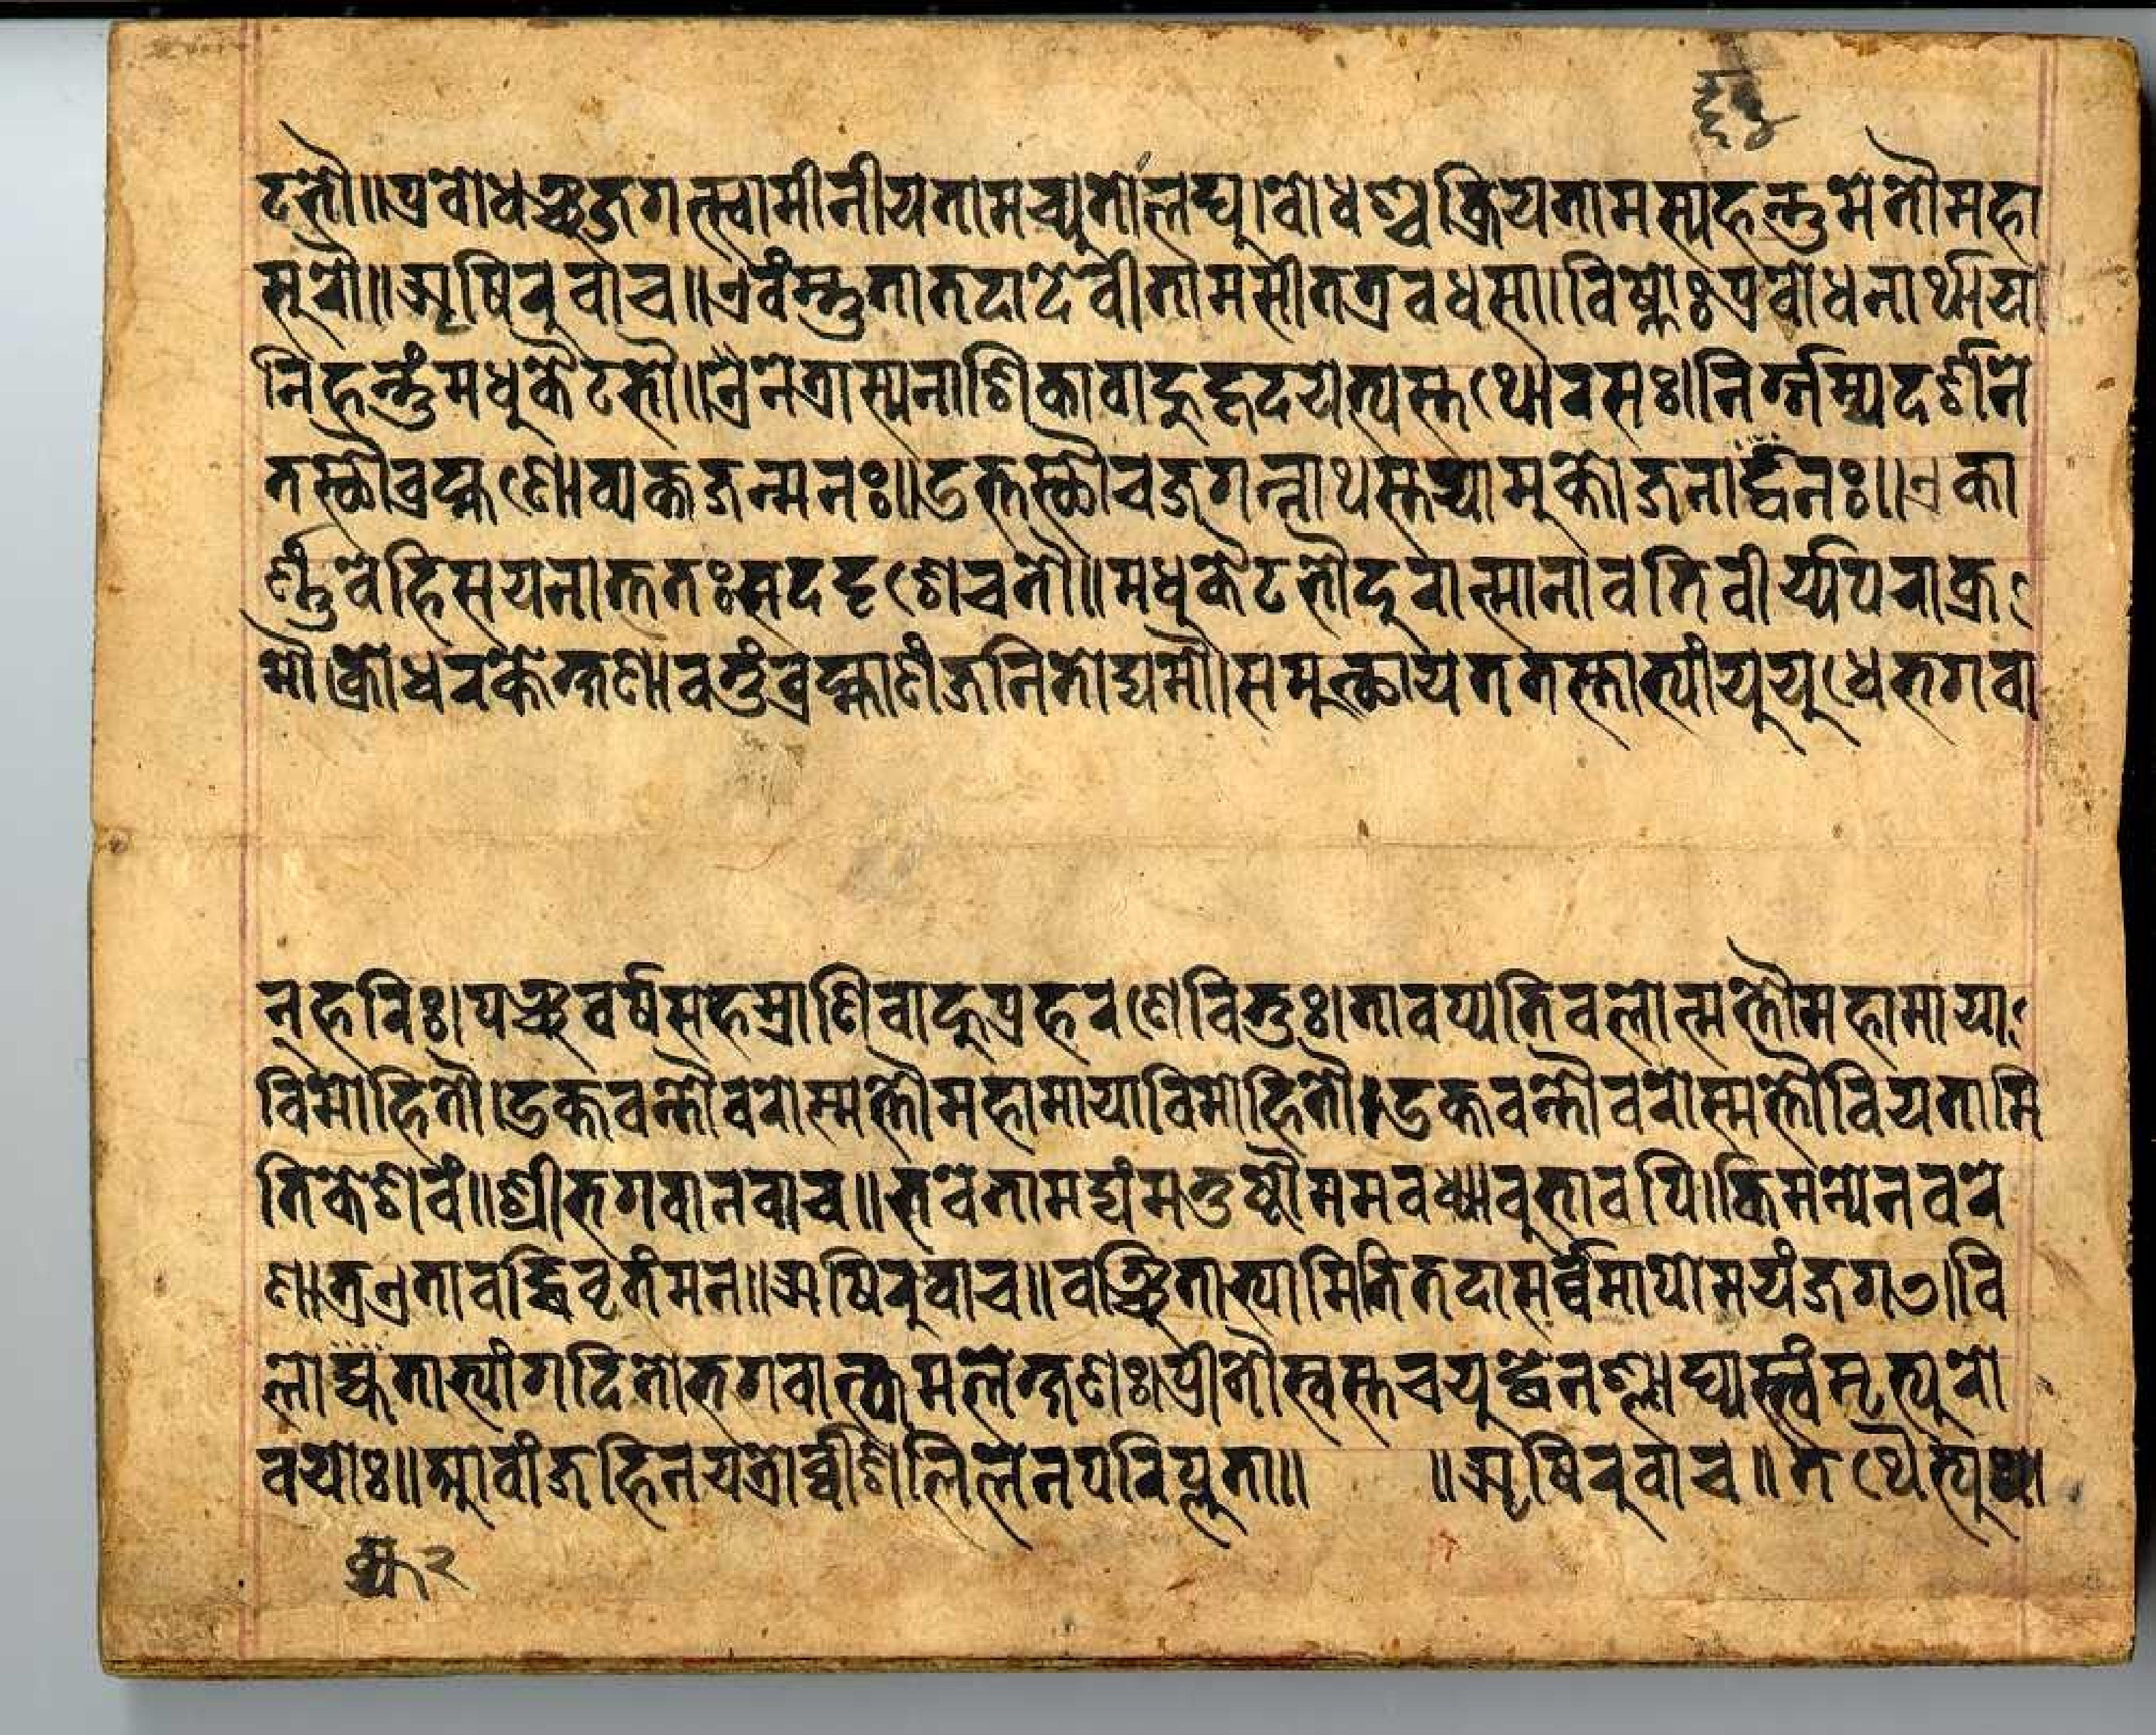 टभौ॥प्रबोधञ्चजगत्स्वामीनीयतामच्युतोलघु।बोधश्चक्रियतामस्यहन्तुमेतौमहा
सुरौ॥ऋषिरुवाच॥एवंस्तुतातदादेवीतामसीतत्रवेधसा।विष्णोःप्रबोधनार्थाय
निहन्तुंमधुकैटभौ॥नेत्रास्यनाशिकाबाहुहृदयेत्यस्तथोरसः।निर्ग्गम्यदर्शने
तस्छौब्रह्मणोव्यक्तजन्मनः॥उत्तस्छौचजगन्नाथस्तयामुक्तोजनार्द्दनः॥एका
र्ण्णवेहिसयनात्ततःसददृशेचतौ॥मधुकैटभौदुरात्मानावतिवीर्य्यपराक्र
मौ।क्रोधरक्तेक्षणावत्तुंब्रह्माणंजनितोद्यमौ।समुत्छायततस्ताभ्यांयुयुधेभगवा
न्हरिः।पञ्चवर्षसहस्राणिबाहुप्रहरणेविभुः।तावप्यतिबलोत्मत्तौमहामाया
विमोहितौ।उक्तवन्तौवरोस्मत्तौमहामायाविमोहितौ।उक्तवन्तौवरोस्मत्तौवियतामि
तिकेशवं॥श्रीभगवानवाच॥भवेतामद्यंमतुष्टौममवध्यावुभावपि।किमन्येनवरे
णात्रएतावद्धिवृतंमन॥ऋषिरुवाच॥वञ्चिताभ्यामितितदासर्व्वमापोमयंजगत्।वि
लोक्यताभ्यांगदितोभगवात्कमलेक्षणः।प्रीतौस्वस्तवयुद्धेनश्लाघ्यस्त्वंमृत्युरो
वयोः॥आवांजहिनयत्रोर्व्वीशलिलेनपरिप्लुता॥ ॥ऋषिरुवाच॥तथेत्यु
२